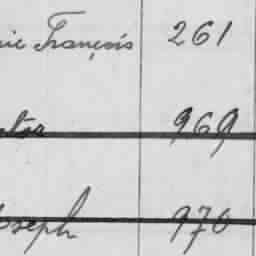 François 261
969
Joseph 970